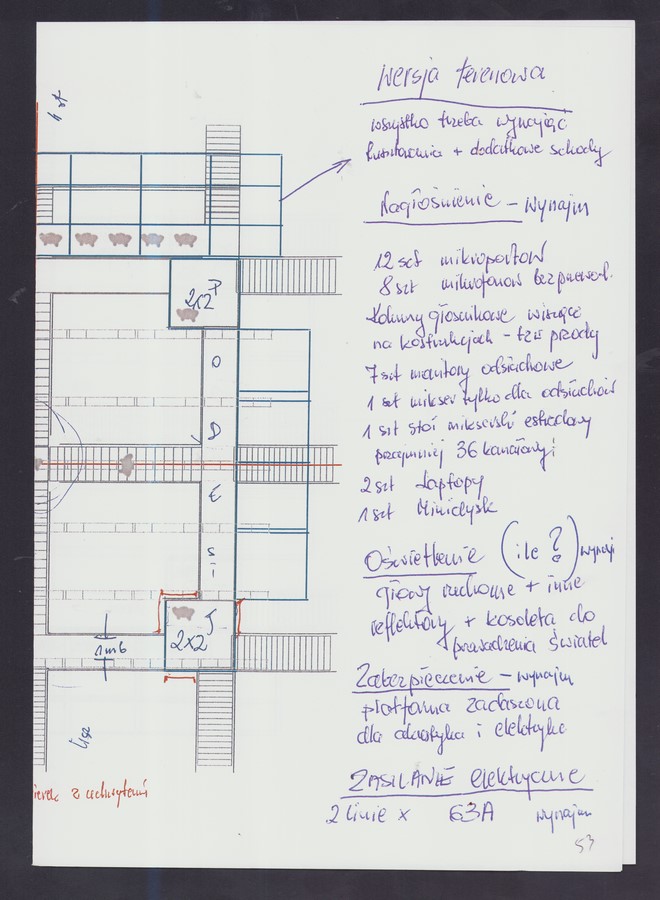 Wersja terenowa
wszystko trzeba wynająć
+ dodatkowe schody
Nagłośnienie – wynajm
12 szt mikroportów
8 szt mikrofonów bezprzewod.
Kolumny głośnikowe wiszące
na konstrukcjach – trzy przody
7 szt monitory odsłuchowe
1 szt mikser tylko dla odsłuchów
1 szt stół mikserski estradowy
przynajmniej 36 kanałowy!
2 szt Laptopy
1 szt Minidysk
Oświetlenie (ile ?) wynajm
głowy ruchome + inne
reflektory + konsoleta do
prowadzenia świateł
Zabezpieczenie – wynajm
platforma zadaszona
dla akustyka i elektryka
ZASILANIE elektryczne
2 linie x 63A wynajm
53
2x2
P
O
D
E
S
T
2x2
1m6
z uchwytami